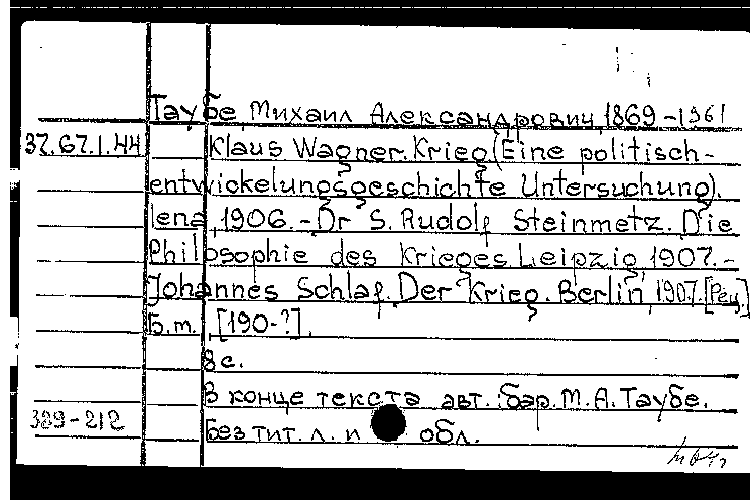 Таубе, Михаил Александрович, 1869-1961
37.67.1.44 Klaus Wagner. Krieg (Eine politisch-
entwickelungsgeschichte Untersuchung).
Iena, 1906. - Dr S. Rudolf Steinmetz. Die
Philosophie des Krieges. Leipzig, 1907. -
Johannes Schlaf. Der Krieg. Berlin, 1907. [Рец.]
Б.м., [190-?].
8 с.
В конце текста авт.: бар. М.А. Таубе.
389-212
Без тит. л. и обл.